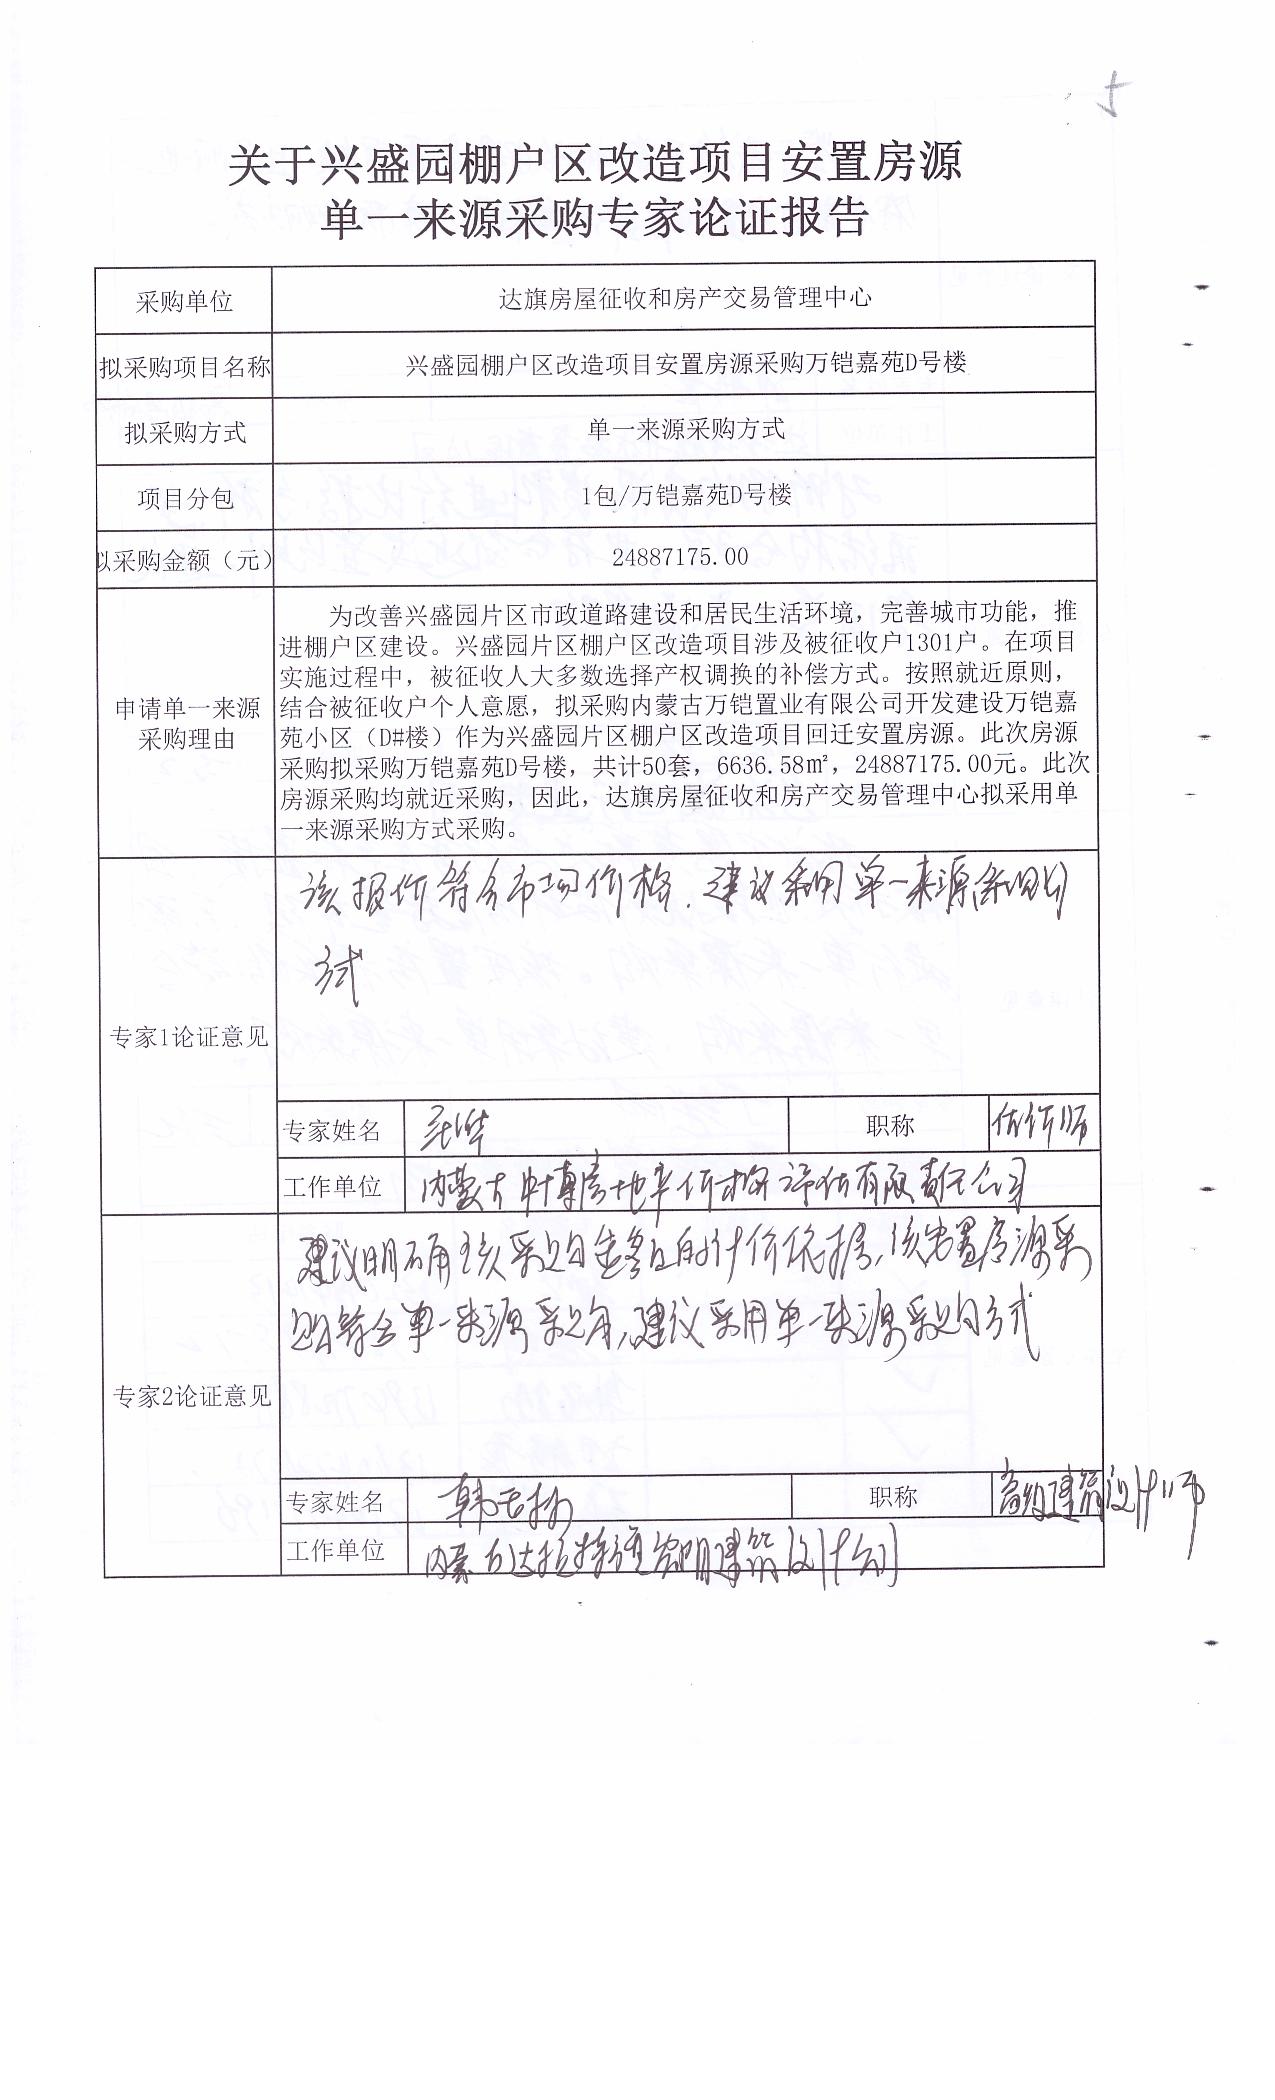 5
关于兴盛园棚户区改造项目安置房源
单一来源采购专家论证报告
采购单位
达旗房屋征收和房产交易管理中心
拟采购项目名称
兴盛园棚户区改造项目安置房源采购万铠嘉苑D号楼
拟采购方式
单一来源采购方式
项目分包
1包/万铠嘉苑D号楼
拟采购金额（元）
24887175.00
申请单一来源
采购理由
为改善兴盛园片区市政道路建设和居民生活环境，完善城市功能，推
进棚户区建设。兴盛园片区棚户区改造项目涉及被征收户1301户。在项目
实施过程中，被征收人大多数选择产权调换的补偿方式。按照就近原则，
结合被征收户个人意愿，拟采购内蒙古万铠置业有限公司开发建设万铠嘉
苑小区（D#楼）作为兴盛园片区棚户区改造项目回迁安置房源。此次房源
采购拟采购万铠嘉苑D号楼，共计50套，6636.58㎡，24887175.00元。此次
房源采购均就近采购，因此，达旗房屋征收和房产交易管理中心拟采用单
一来源采购方式采购。
专家1论证意见
该报价符合市场价格．建议采用单一来源采购方
式
专家姓名
职称
估价师
工作单位
内蒙古 房地产价格评估有限责任公司
专家2论证意见
建议明确该采购 的计价依据，该安置房源采
购符合单一来源采购，建议采用单一来源采购方式
专家姓名
韩
职称
高级建筑设计师
工作单位
内蒙古达拉特 建筑设计公司